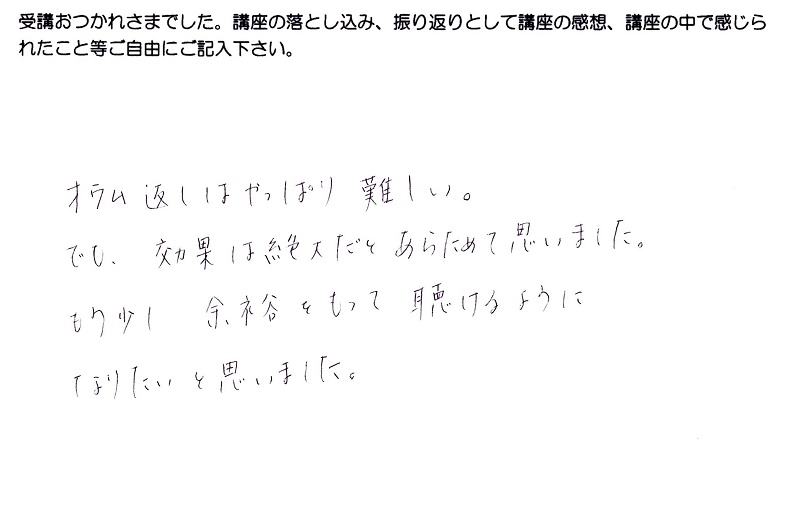 受講おつかれさまでした。講座の落とし込み、振り返りとして講座の感想、講座の中で感じら
れたこと等ご自由にご記入下さい。
オウム返しはやっぱり難しい。
でも、効果は絶大だとあらためて思いました。
もう少し余裕をもって聴けるように
なりたいと思いました。